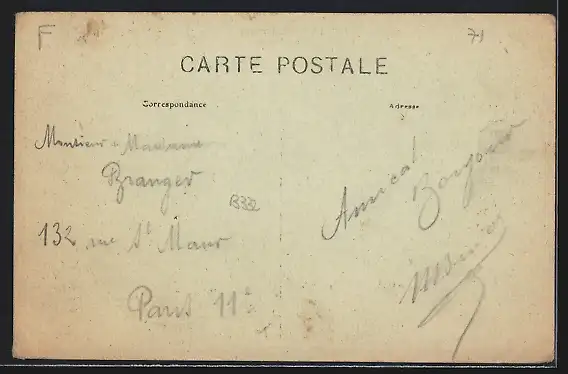 F
71
CARTE POSTALE
Correspondance
Adresse
Monsieur & Madame
Branger
132 rue St Maur
Paris 11e
Amical
Bonjour